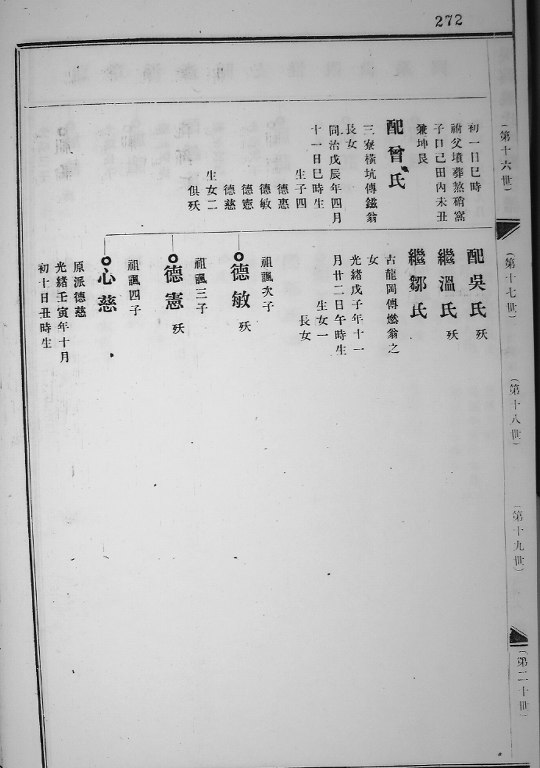 272
(第十六世)
初一日巳時
祔父墳葬熬硝窩
子口己田內未丑
兼坤艮
配曾氏
三寮橫坑傳鎡翁
長女
同治戊辰年四月
十一日巳時生
生子四
德惠
德敏
德憲
德慈
生女二
俱殀
(第十七世)
配吳氏 殀
繼溫氏 殀
繼鄒氏
古龍岡傳燃翁之
女
光緒戊子年十一
月廿二日午時生
生女一
長女
德敏 殀
祖諷次子
德憲 殀
祖諷三子
心慈
祖諷四子
原派德慈
光緒壬寅年十月
初十日丑時生
(第十八世)
(第十九世)
(第二十世)